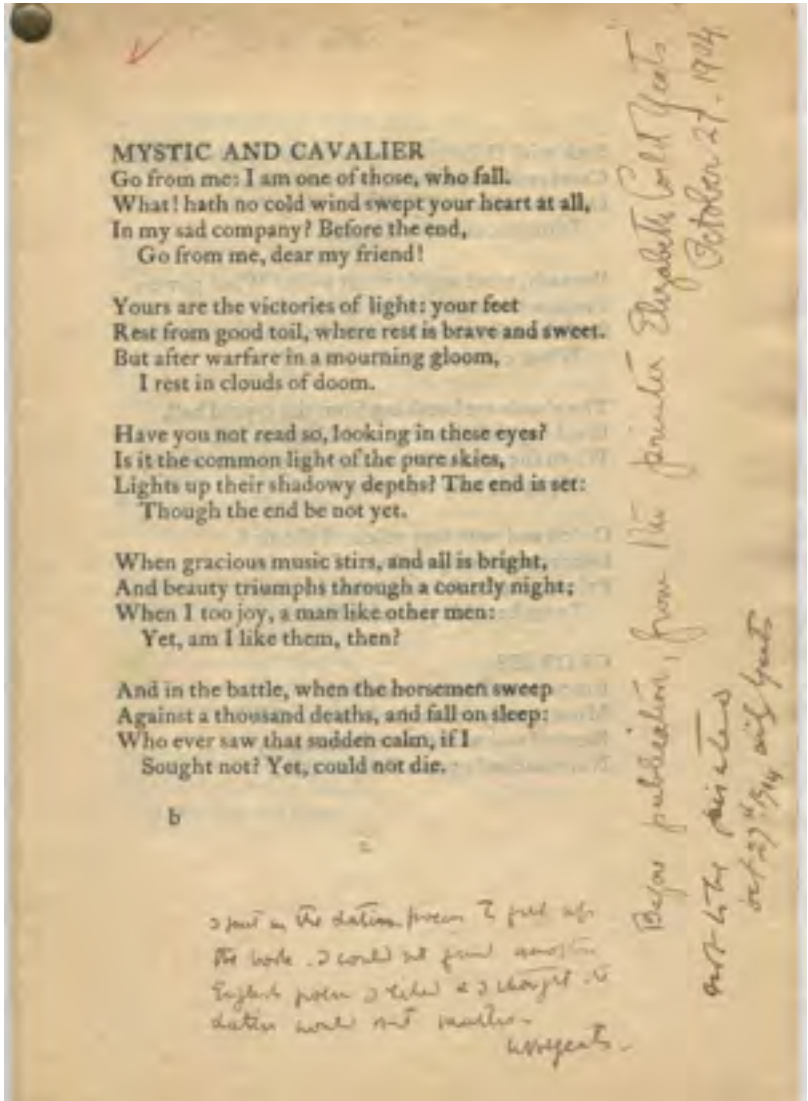 MYSTIC AND CAVALIER
Go from me: I am one of those, who fall.
What! hath no cold wind swept your heart at all,
In my sad company? Before the end,
Go from me, dear my friend!
Yours are the victories of light: your feet
Rest from good toil, where rest is brave and sweet.
But after warfare in a mourning gloom,
I rest in clouds of doom.
Have you not read so, looking in these eyes?
Is it the common light of the pure skies,
Lights up their shadowy depths? The end is set:
Though the end be not yet.
When gracious music stirs, and all is bright,
And beauty triumphs through a courtly night;
When I too joy, a man like other men:
Yet, am I like them, then?
And in the battle, when the horsemen sweep
Against a thousand deaths, and fall on sleep:
Who ever saw that sudden calm, if I
Sought not? Yet, could not die.
b
I put in the latin poem to fill up
the book. I could not find another
English poem I liked & I thought the
latin would not matter.
WBYeats.
Before publication, from the printer Elizabeth Corbet Yeats
October 27. 1904
sent to the printers
Oct 27th 1904 Yeats